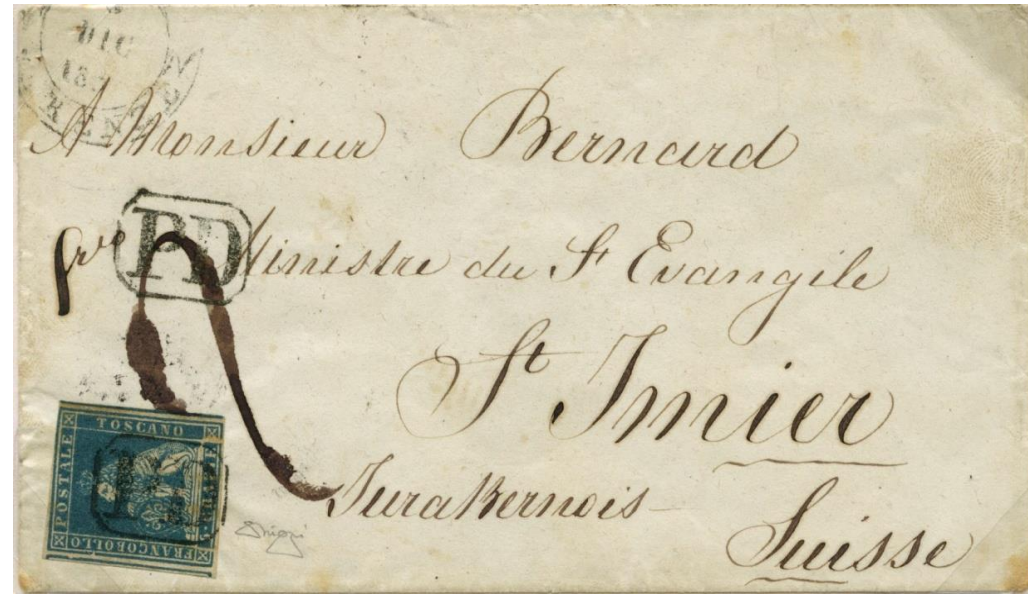 DIC
185
A Monsieur Bernard
PD
Ministre du St Evangile
St Imier
Jura Bernois
Suisse
TOSCANO
POSTALE
FRANCOBOLLO
PD